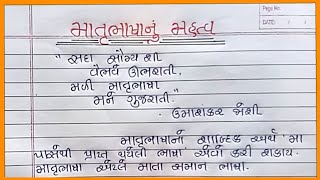 Page No.
Date
માતૃભાષાનું મહત્વ
"સદા સૌમ્ય શી
વૈભવે ઊભરાતી,
મળી માતૃભાષા
મને ગુજરાતી."
- ઉમાશંકર જોશી
માતૃભાષાનો શાબ્દિક અર્થ 'મા
પાસેથી પ્રાપ્ત થયેલી ભાષા' એવો કરી શકાય.
માતૃભાષા એટલે માતા સમાન ભાષા.